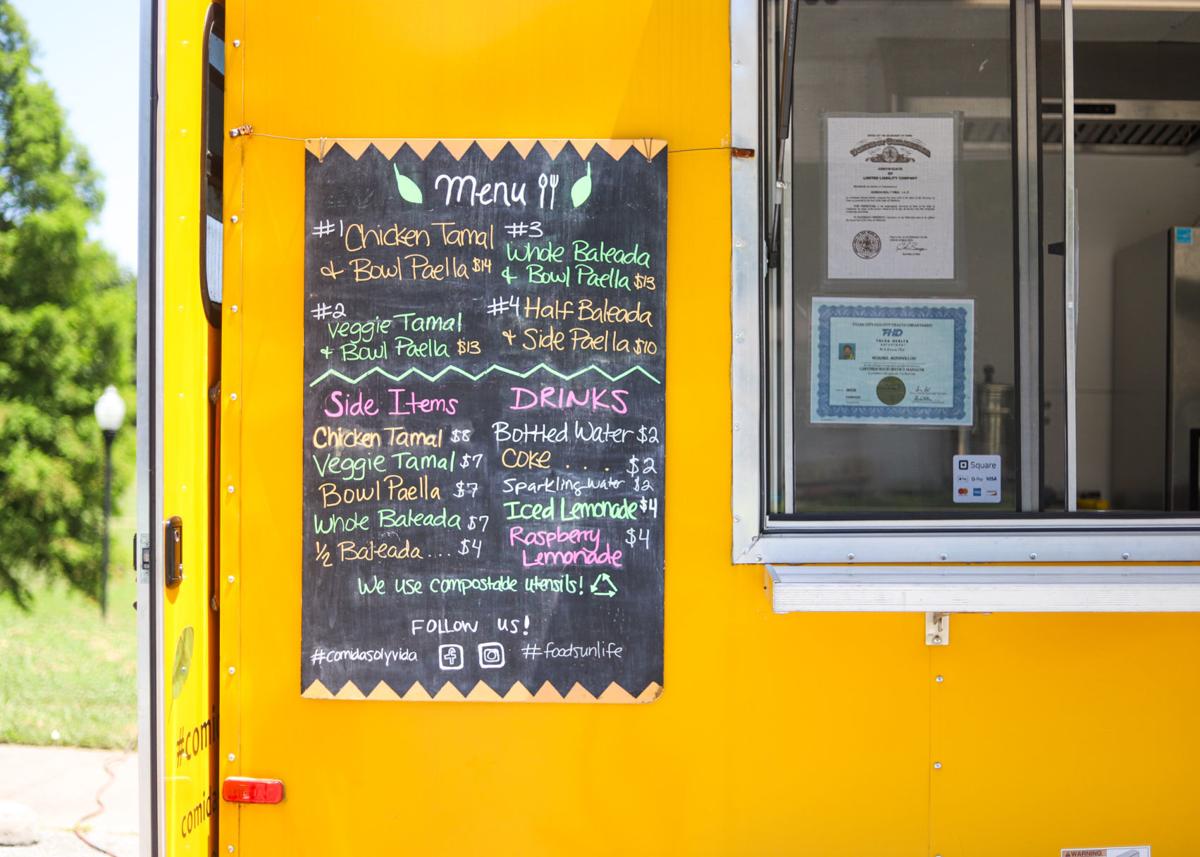 Menu
#1 Chicken Tamal
& Bowl Paella $14
#2
Veggie Tamal
& Bowl Paella $13
#3
Whole Baleada
& Bowl Paella $13
#4 Half Baleada
& Side Paella $10
Side Items
Chicken Tamal $8
Veggie Tamal $7
Bowl Paella $7
Whole Baleada $7
1/2 Baleada.... $4
DRINKS
Bottled Water $2
COKE . . . . $2
Sparkling water $2
Iced Lemonade $4
Raspberry
Lemonade $4
We use compostable utensils!
FOLLOW US!
#comidasolyvida
#foodsunlife
CERTIFICATE
OF
LIMITED LIABILITY COMPANY
THD
TULSA HEALTH
DEPARTMENT
Square
G Pay
VISA
#comi
comida
WARNING